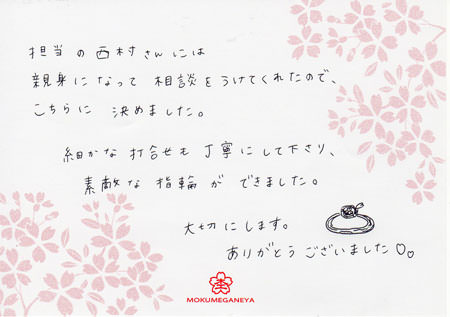 担当の西村さんには
親身になって相談をうけてくれたので、
こちらに決めました。
細かな打合せも丁寧にして下さり、
素敵な指輪ができました。
大切にします。
ありがとうございました♡。
MOKUMEGANEYA